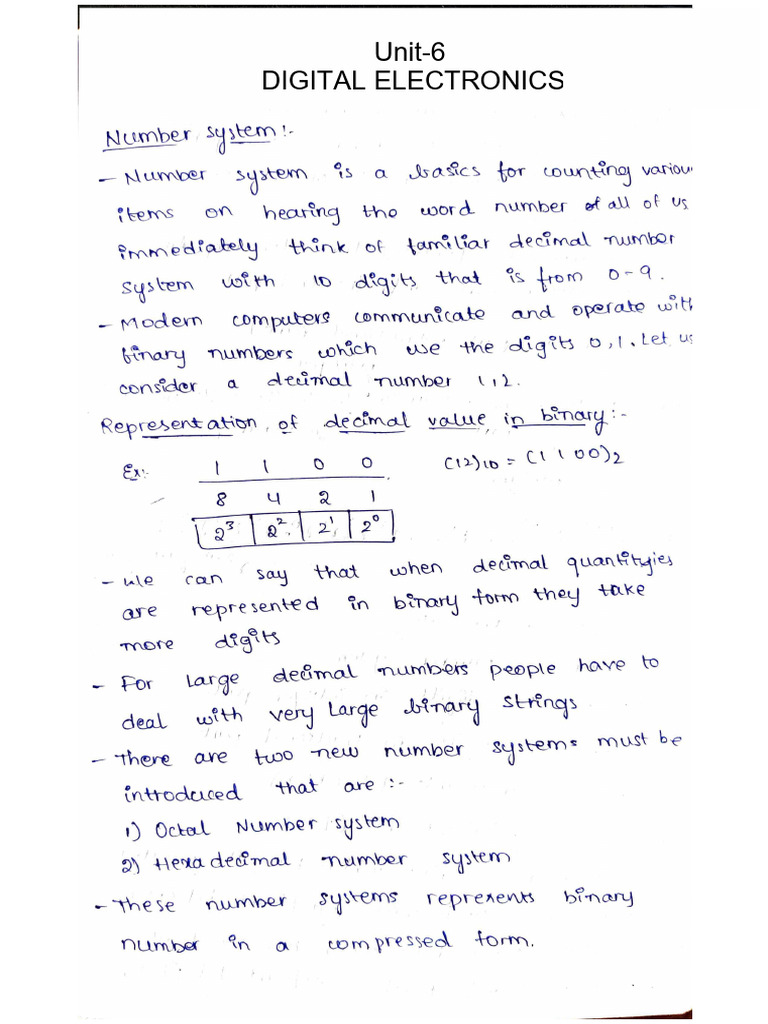 Unit-6
DIGITAL ELECTRONICS
Number system :-
- Number system is a basics for counting variou
items on hearing the word number of all of us
immediately think of familiar decimal number
system with 10 digits that is from 0-9.
- Modern computers communicate and operate with
binary numbers which use the digits 0,1. Let us
consider a decimal number 1,2.
Representation of decimal value in binary :-
Ex:- 1 1 0 0 (12)10 = (1100)2
8 4 2 1
2^3 2^2 2^1 2^0
- We can say that when decimal quantityies
are represented in binary form they take
more digits
- For large decimal numbers people have to
deal with very large binary strings
- There are two new number systems must be
introduced that are :-
1) Octal Number system
2) Hexa decimal number system
- These number systems represents binary
number in a compressed form.